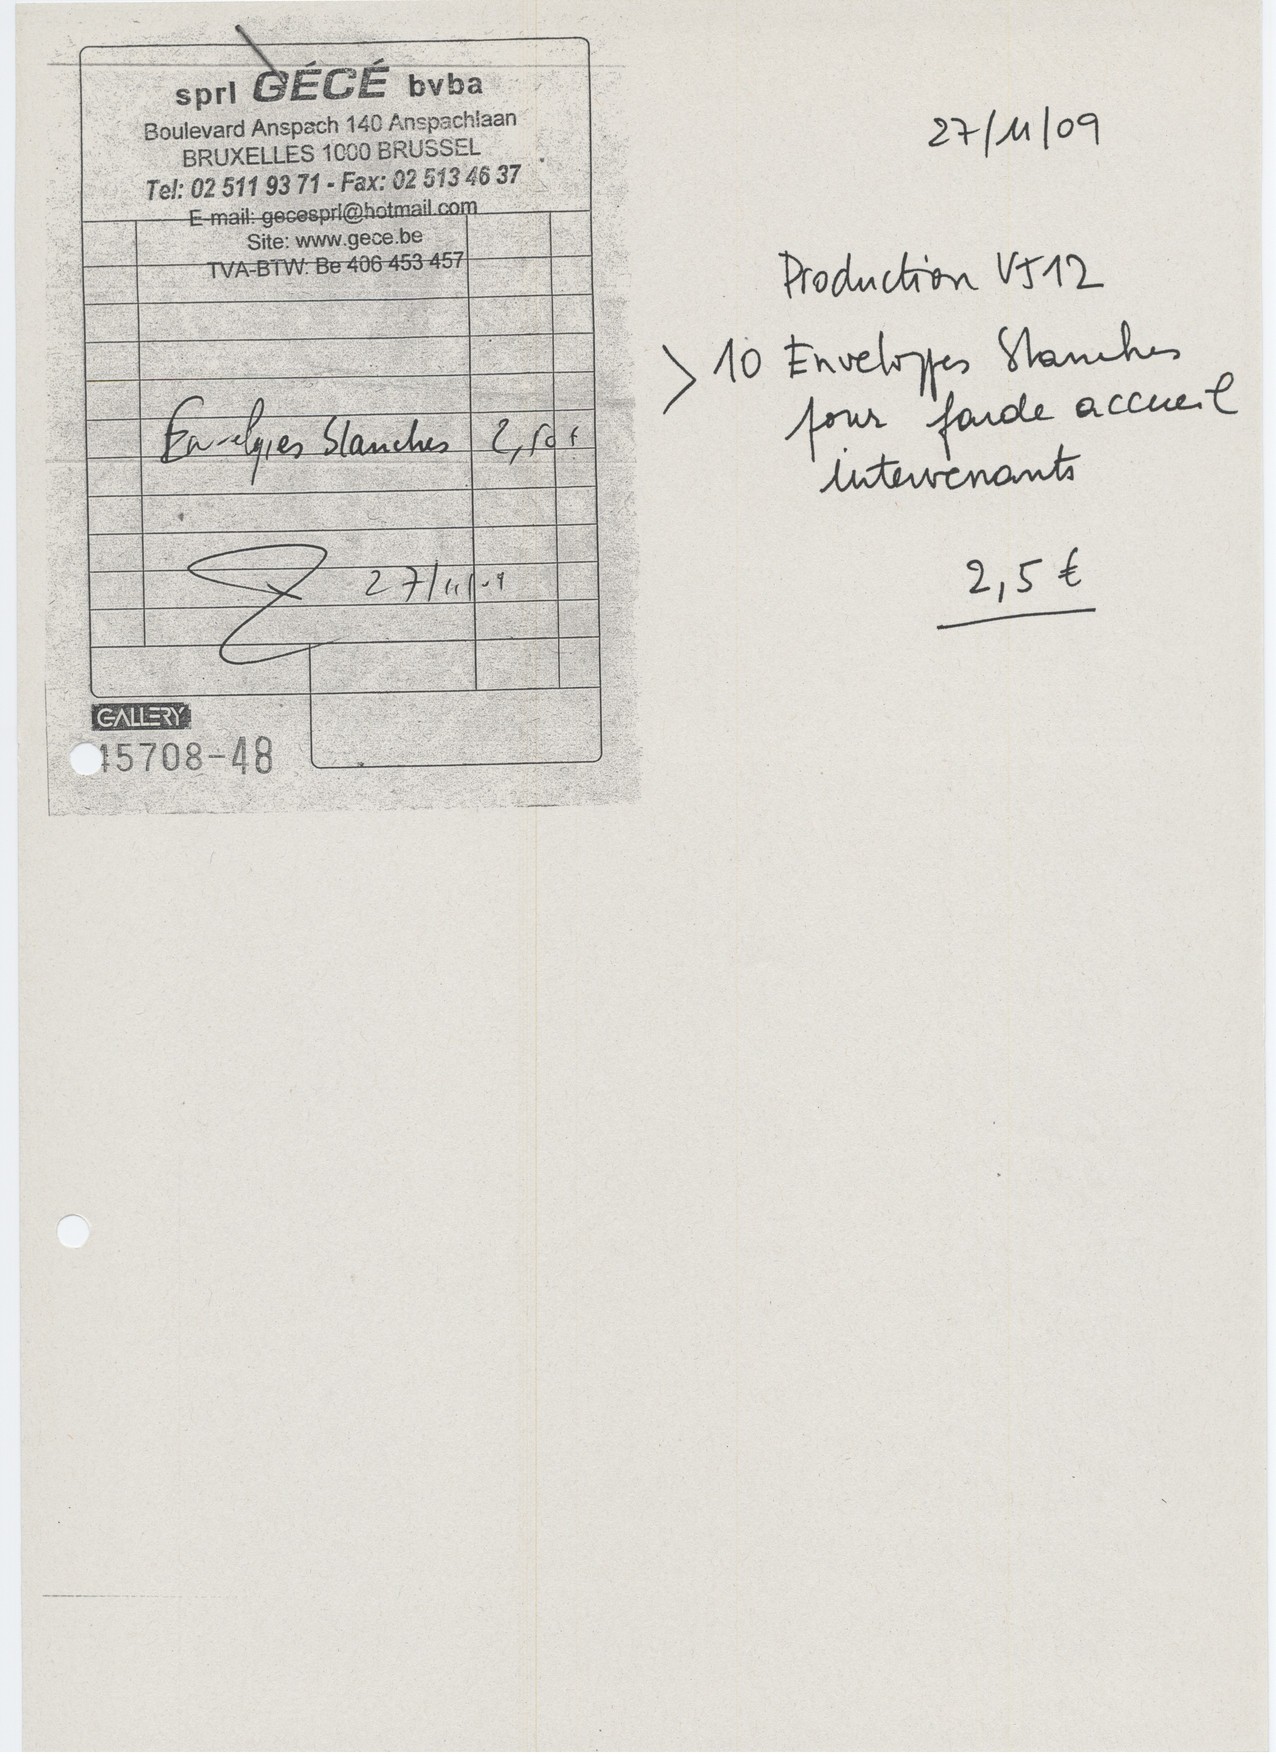 sprl GÉCÉ bvba
Boulevard Anspach 140 Anspachlaan
BRUXELLES 1000 BRUSSEL
Tel: 02 511 93 71 - Fax: 02 513 46 37
E-mail: gecesprl@hotmail.com
Site: www.gece.be
TVA-BTW: Be 406 453 457
Enveloppes blanches 2,50 €
27/11/09
GALLERY
45708-48
27/11/09
Production VJ12
> 10 Enveloppes blanches
pour farde accueil
intervenants
2,5 €